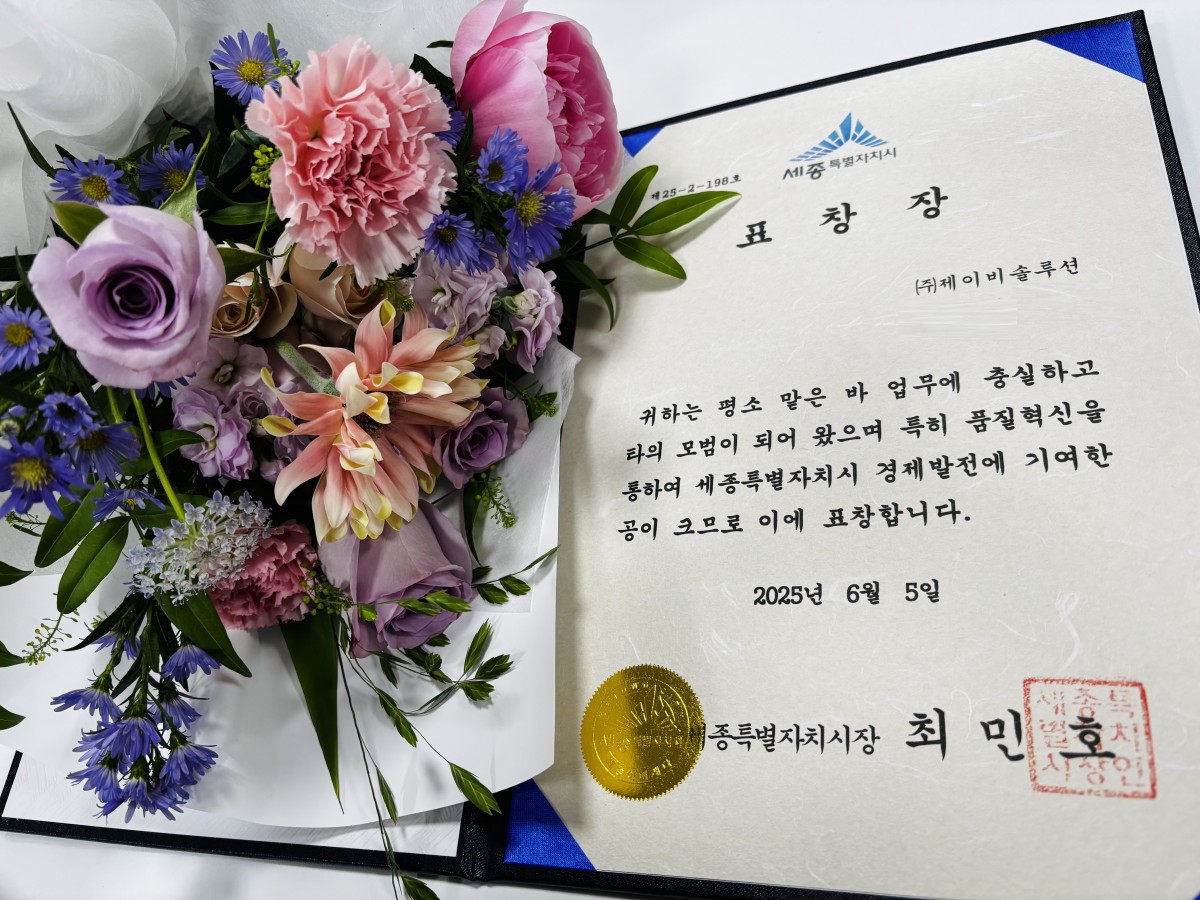 세종특별자치시
제25-2-198호
표 창 장
㈜제이비솔루션
귀하는 평소 맡은 바 업무에 충실하고
타의 모범이 되어 왔으며 특히 품질혁신을
통하여 세종특별자치시 경제발전에 기여한
공이 크므로 이에 표창합니다.
2025년 6월 5일
세종특별자치시장 최 민 호